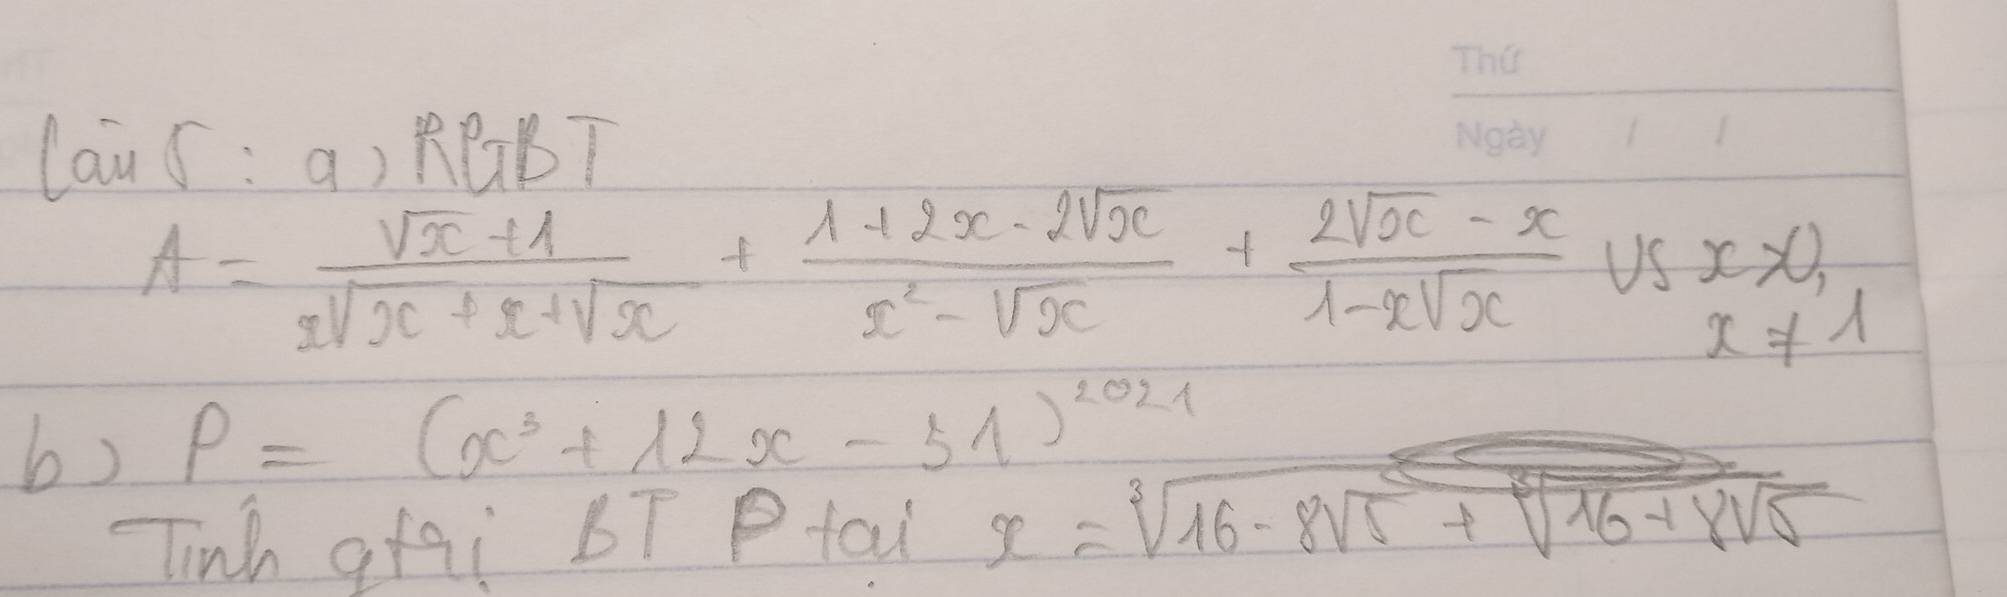 Thứ
Ngày / /
Câu 5 : a) RGBT
A = \frac{\sqrt{x}+1}{x\sqrt{x}+x+\sqrt{x}} + \frac{1+2x-2\sqrt{x}}{x^2-\sqrt{x}} + \frac{2\sqrt{x}-x}{1-x\sqrt{x}} vs x>0, x ≠ 1
b) P = (x³ + 12x - 31)²⁰²¹
Tính gtrị BT P tại x = ∛(16 - 8√5) + ∛(16 + 8√5)